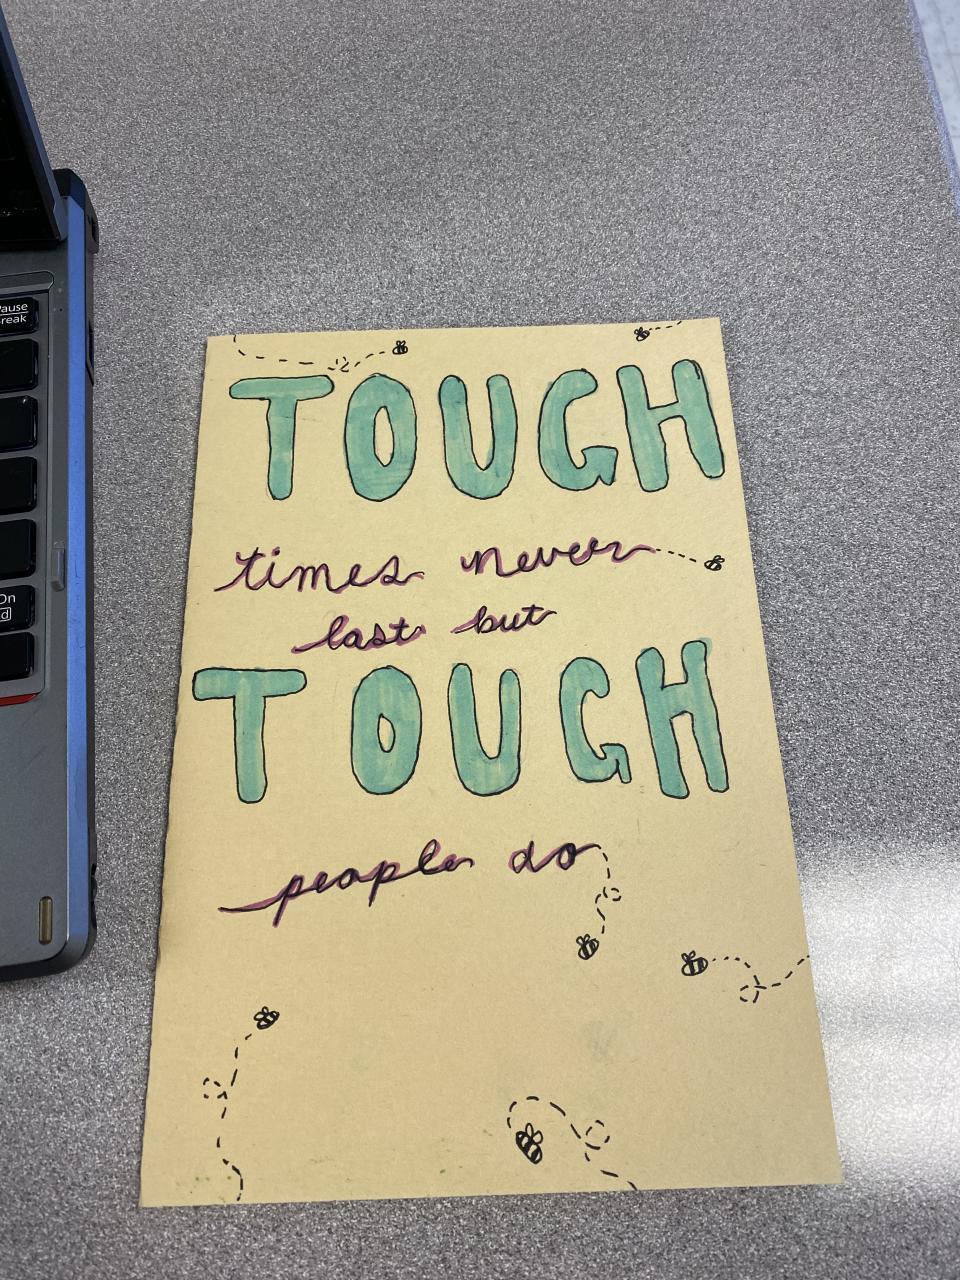 Pause
Break
On
TOUGH
times never
last but
TOUGH
people do